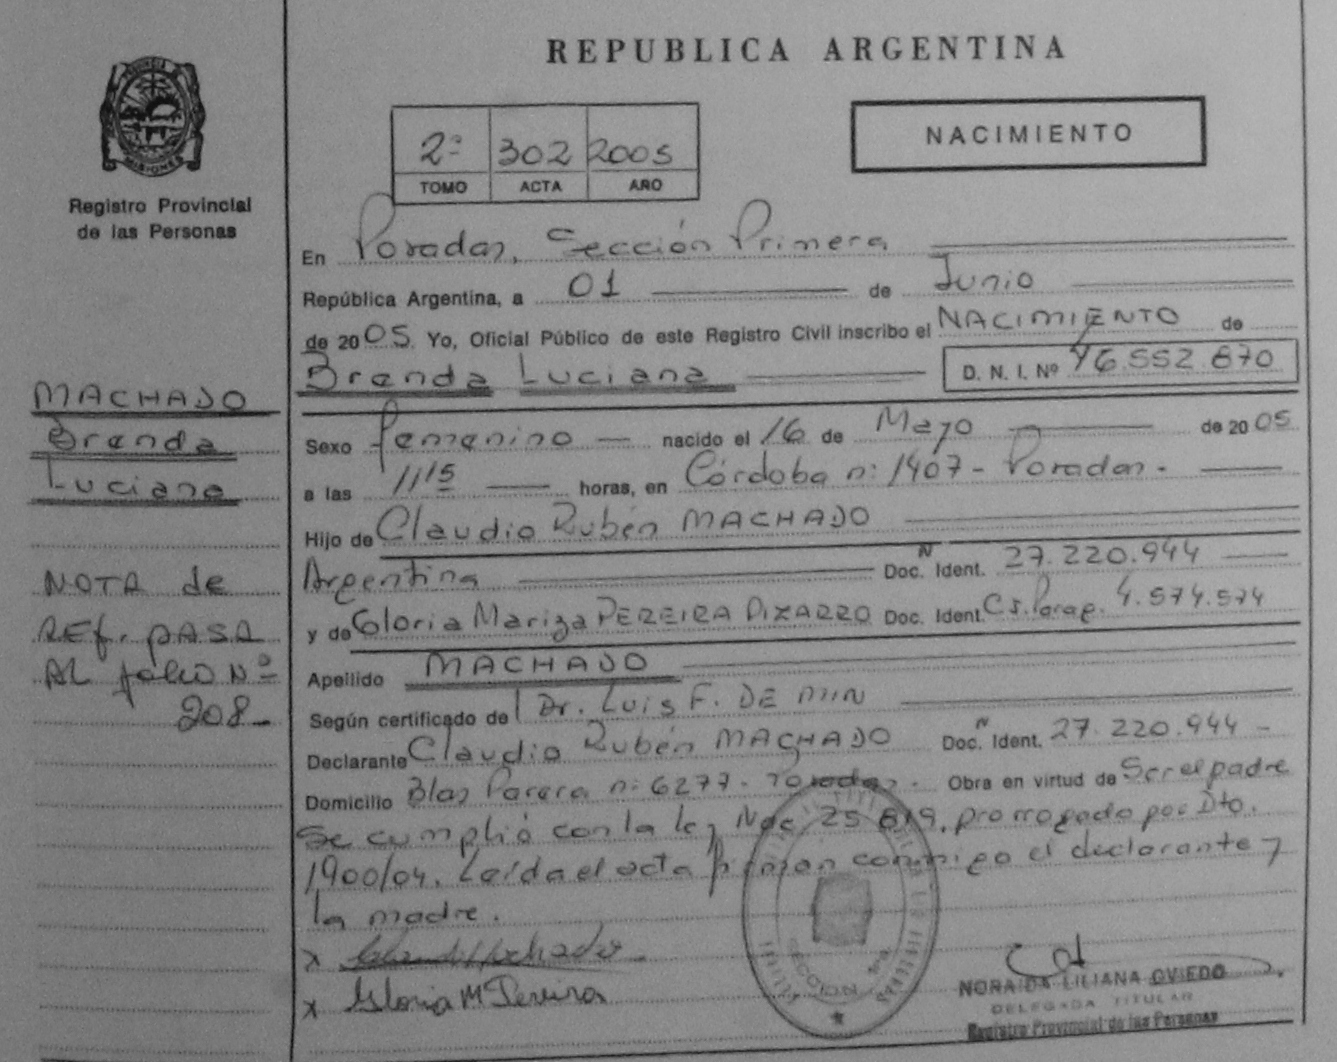 REPUBLICA ARGENTINA
PROVINCIA DE
MISIONES
Registro Provincial
de las Personas
2º 302 2005
TOMO ACTA AÑO
NACIMIENTO
En Posadas, Sección Primera
República Argentina, a 01 de Junio
de 2005. Yo, Oficial Público de este Registro Civil inscribo el NACIMIENTO de
Brenda Luciana D. N. I. Nº 46.552.870
Sexo Femenino nacido el 16 de Mayo de 2005
a las 11 15 horas, en Córdoba n: 1407 - Posadas.
Hijo de Claudio Rubén MACHADO
Argentina Doc. Ident. 27.220.944
y de Gloria Mariza PEREIRA PIZARRO Doc. Ident. C.I. Parag. 4.574.574
Apellido MACHADO
Según certificado de Dr. Luis F. DE MIN
Declarante Claudio Rubén MACHADO Doc. Ident. 27.220.944 -
Domicilio Blas Parera n: 6277 - Posadas. Obra en virtud de Ser el padre
Se cumplió con la ley Nac. 25.819, prorrogado por Dto.
1900/04. Leída el acta firman conmigo el declarante y
la madre.
x
x Gloria M Pereira
SECCION 1ra
NORAIDA LILIANA OVIEDO
DELEGADA TITULAR
Registro Provincial de las Personas
MACHADO
Brenda
Luciana
NOTA de
REf. pASA
AL folio Nº
208-